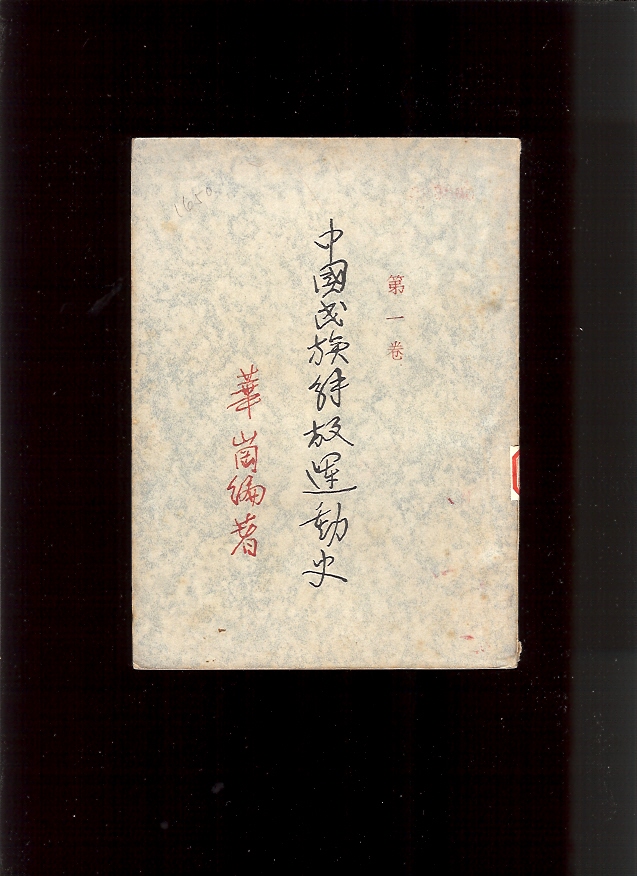 第一卷
中國民族解放運動史
華崗編著
1650